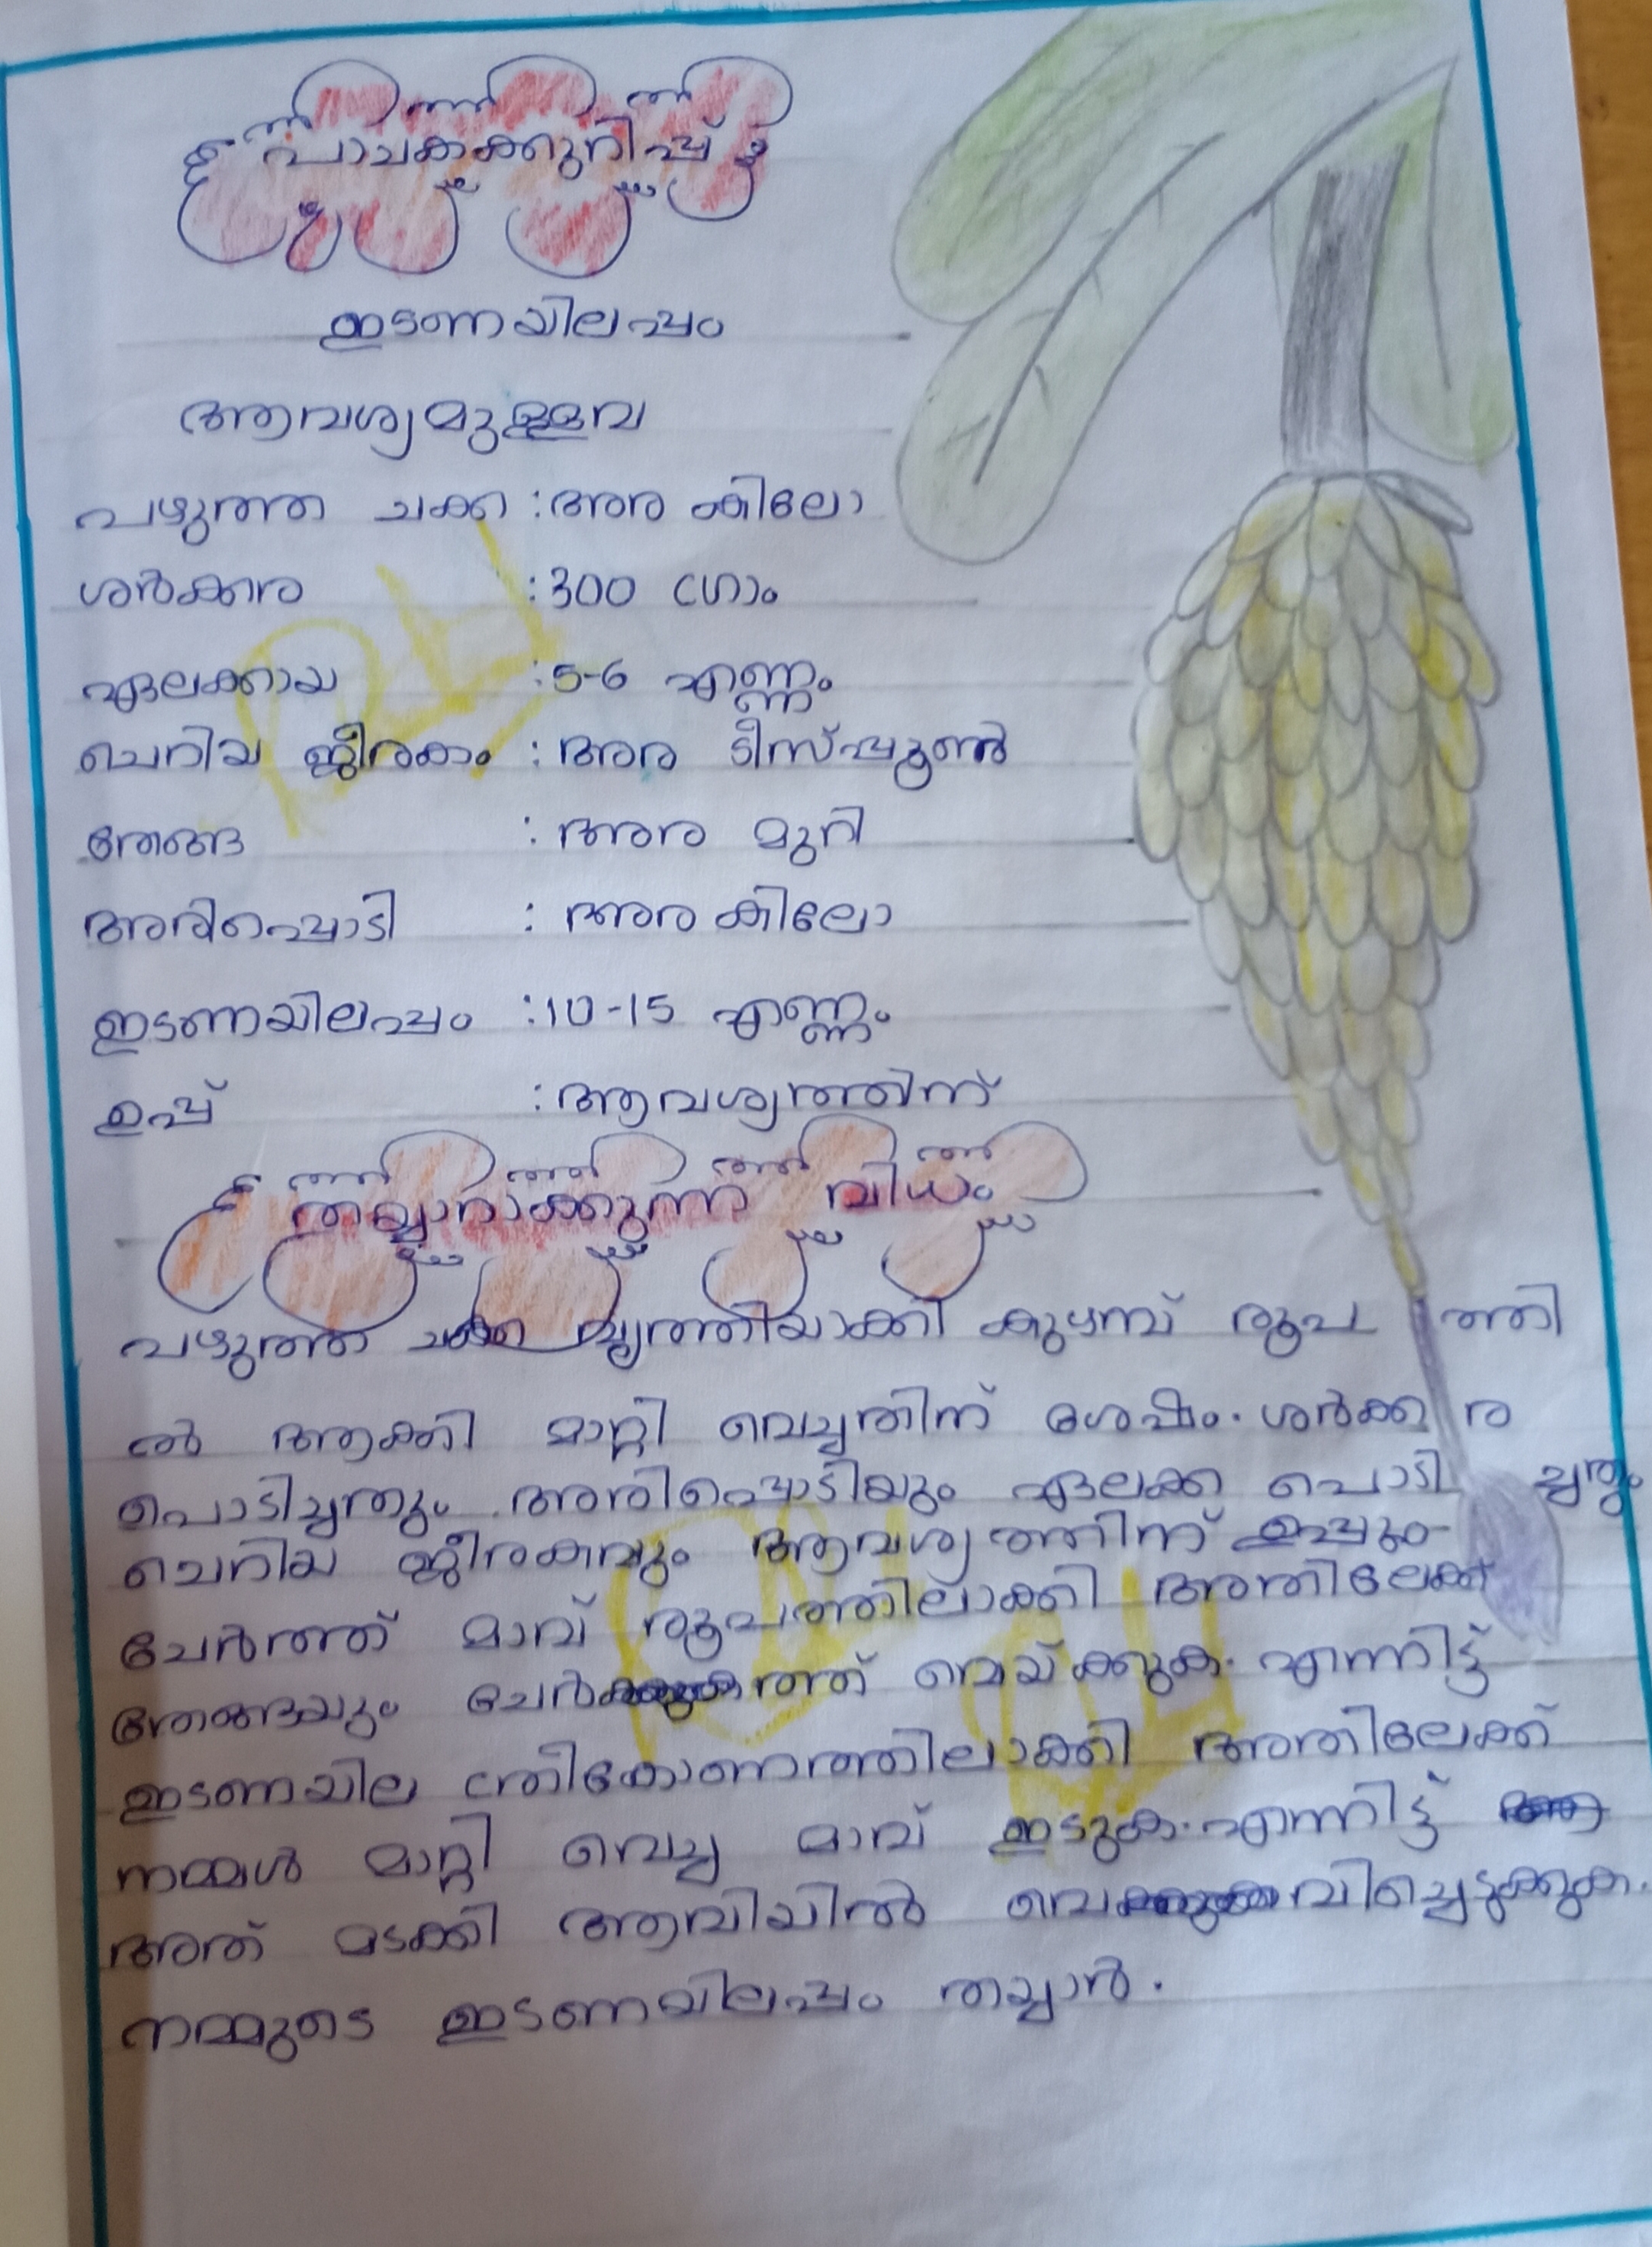 പാചകക്കുറിപ്പ്
ഇടണയിലപ്പം
ആവശ്യമുള്ളവ
പഴുത്ത ചക്ക : അര കിലോ
ശർക്കര : 300 ഗ്രാം
ഏലക്കായ : 5-6 എണ്ണം
ചെറിയ ജീരകം : അര ടീസ്പ്പൂൺ
തേങ്ങ : അര മുറി
അരിപ്പൊടി : അര കിലോ
ഇടണയിലപ്പം : 10-15 എണ്ണം
ഉപ്പ് : ആവശ്യത്തിന്
തയ്യാറാക്കുന്ന വിധം
പഴുത്ത ചക്ക വൃത്തിയാക്കി കുഴമ്പ് രൂപ ത്തി
ൽ ആക്കി മാറ്റി വെച്ചതിന് ശേഷം. ശർക്ക ര
പൊടിച്ചതും അരിപ്പൊടിയും ഏലക്ക പൊടി ച്ചതും
ചെറിയ ജീരകവും ആവശ്യത്തിന് ഉപ്പും
ചേർത്ത് മാവ് രൂപത്തിലാക്കി അതിലേക്ക്
തേങ്ങയും ചേർത്ത് വെയ്ക്കുക. എന്നിട്ട്
ഇടണയില ത്രീകോണത്തിലാക്കി അതിലേക്ക്
നമ്മൾ മാറ്റി വെച്ച മാവ് ഇടുക. എന്നിട്ട്
അത് മടക്കി ആവിയിൽ വെവിച്ചെടുക്കുക.
നമ്മുടെ ഇടണയിലപ്പം തയ്യാർ.